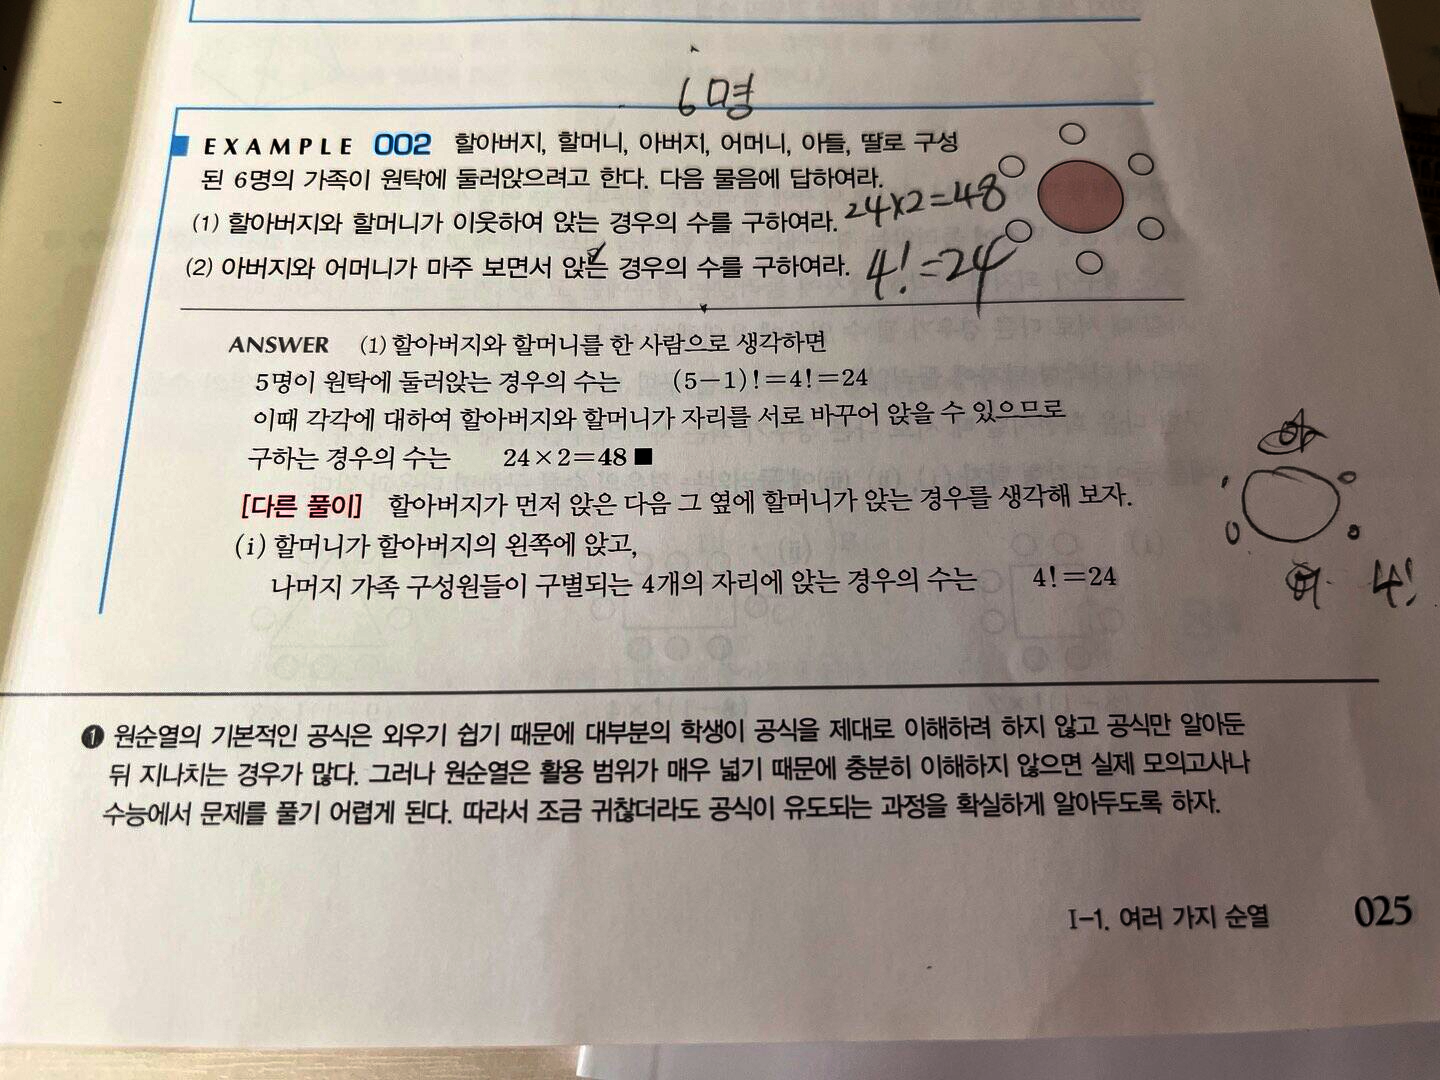 6명
EXAMPLE 002 할아버지, 할머니, 아버지, 어머니, 아들, 딸로 구성
된 6명의 가족이 원탁에 둘러앉으려고 한다. 다음 물음에 답하여라.
(1) 할아버지와 할머니가 이웃하여 앉는 경우의 수를 구하여라. 24×2=48
(2) 아버지와 어머니가 마주 보면서 앉는 경우의 수를 구하여라. 4!=24
ANSWER (1) 할아버지와 할머니를 한 사람으로 생각하면
5명이 원탁에 둘러앉는 경우의 수는 (5-1)!=4!=24
이때 각각에 대하여 할아버지와 할머니가 자리를 서로 바꾸어 앉을 수 있으므로
구하는 경우의 수는 24×2=48 ■
[다른 풀이] 할아버지가 먼저 앉은 다음 그 옆에 할머니가 앉는 경우를 생각해 보자.
(i) 할머니가 할아버지의 왼쪽에 앉고,
나머지 가족 구성원들이 구별되는 4개의 자리에 앉는 경우의 수는 4!=24
아
어 4!
❶ 원순열의 기본적인 공식은 외우기 쉽기 때문에 대부분의 학생이 공식을 제대로 이해하려 하지 않고 공식만 알아둔
뒤 지나치는 경우가 많다. 그러나 원순열은 활용 범위가 매우 넓기 때문에 충분히 이해하지 않으면 실제 모의고사나
수능에서 문제를 풀기 어렵게 된다. 따라서 조금 귀찮더라도 공식이 유도되는 과정을 확실하게 알아두도록 하자.
I-1. 여러 가지 순열 025